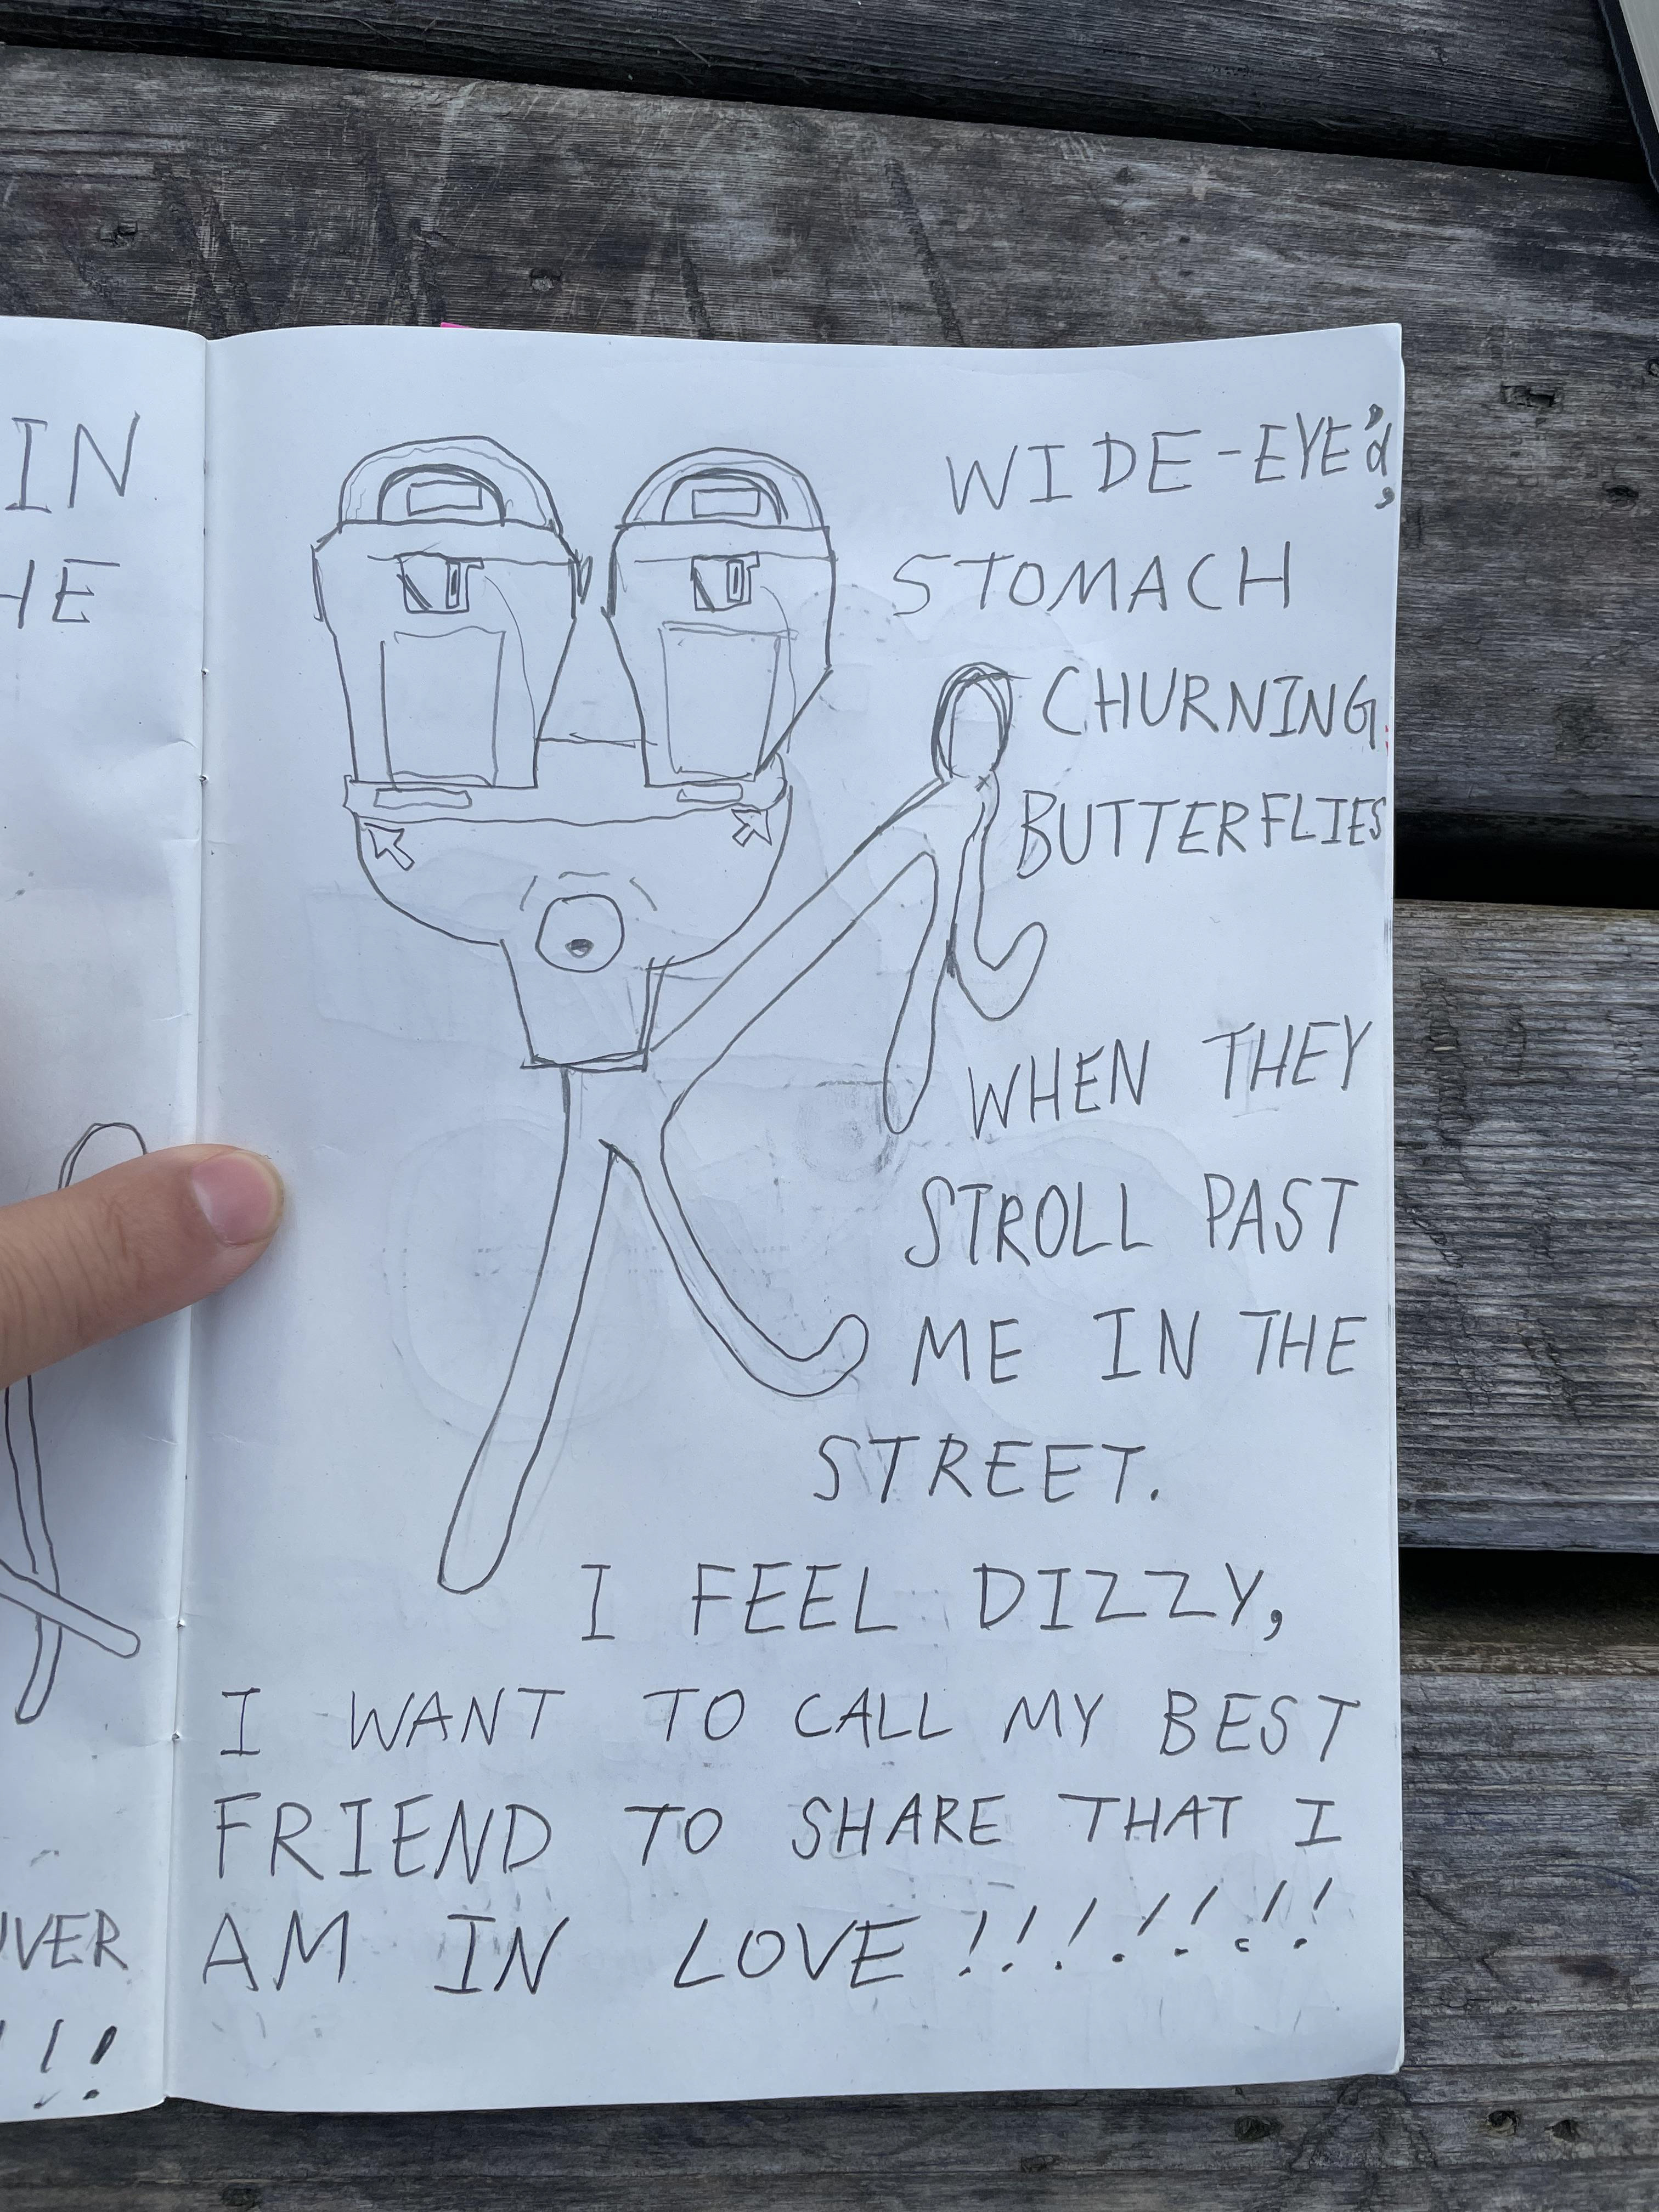 IN
HE
WIDE-EYE'd,
STOMACH
CHURNING
BUTTERFLIES
WHEN THEY
STROLL PAST
ME IN THE
STREET.
I FEEL DIZZY,
I WANT TO CALL MY BEST
FRIEND TO SHARE THAT I
AM IN LOVE!!!!!!!
VER
!!